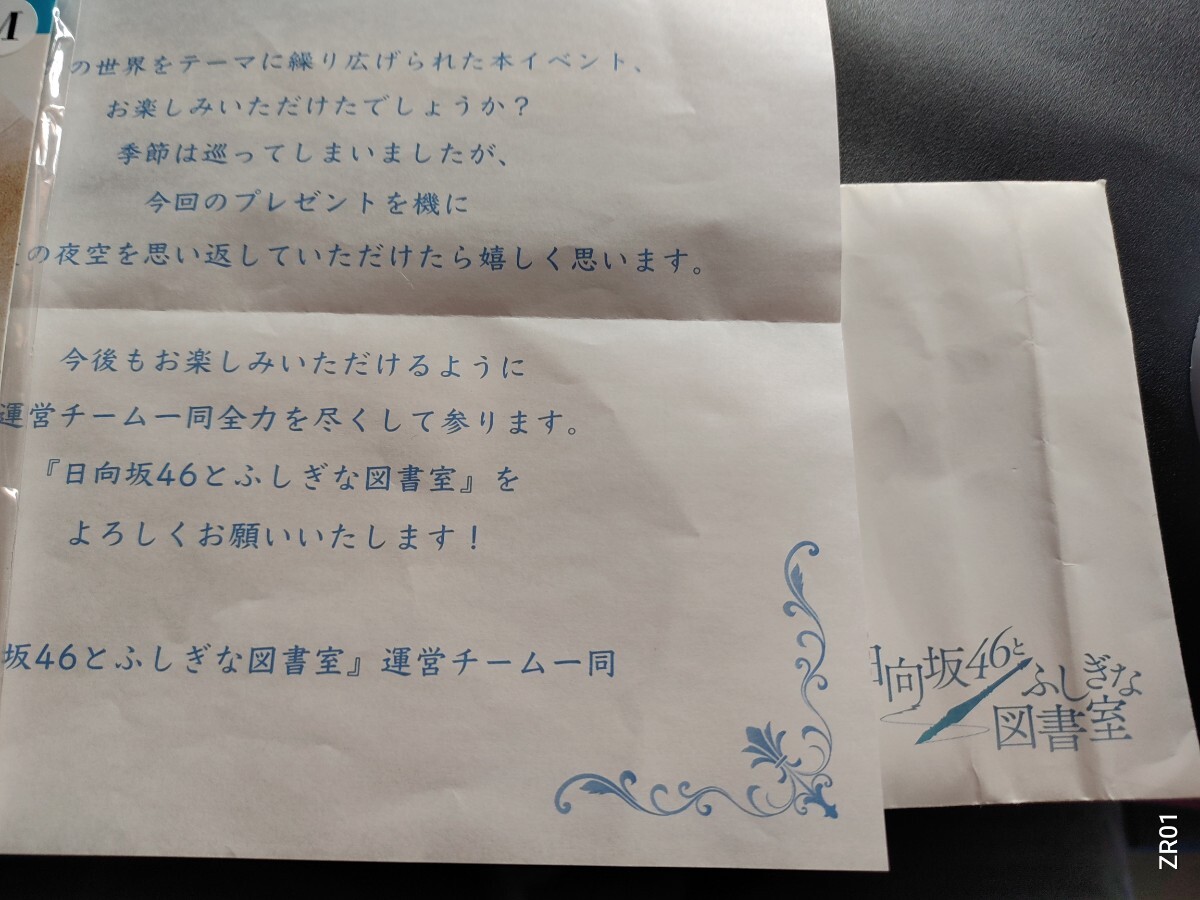 M
の世界をテーマに繰り広げられた本イベント、
お楽しみいただけたでしょうか？
季節は巡ってしまいましたが、
今回のプレゼントを機に
の夜空を思い返していただけたら嬉しく思います。
今後もお楽しみいただけるように
運営チーム一同全力を尽くして参ります。
『日向坂46とふしぎな図書室』を
よろしくお願いいたします！
坂46とふしぎな図書室』運営チーム一同
日向坂46と
ふしぎな
図書室
ZR01